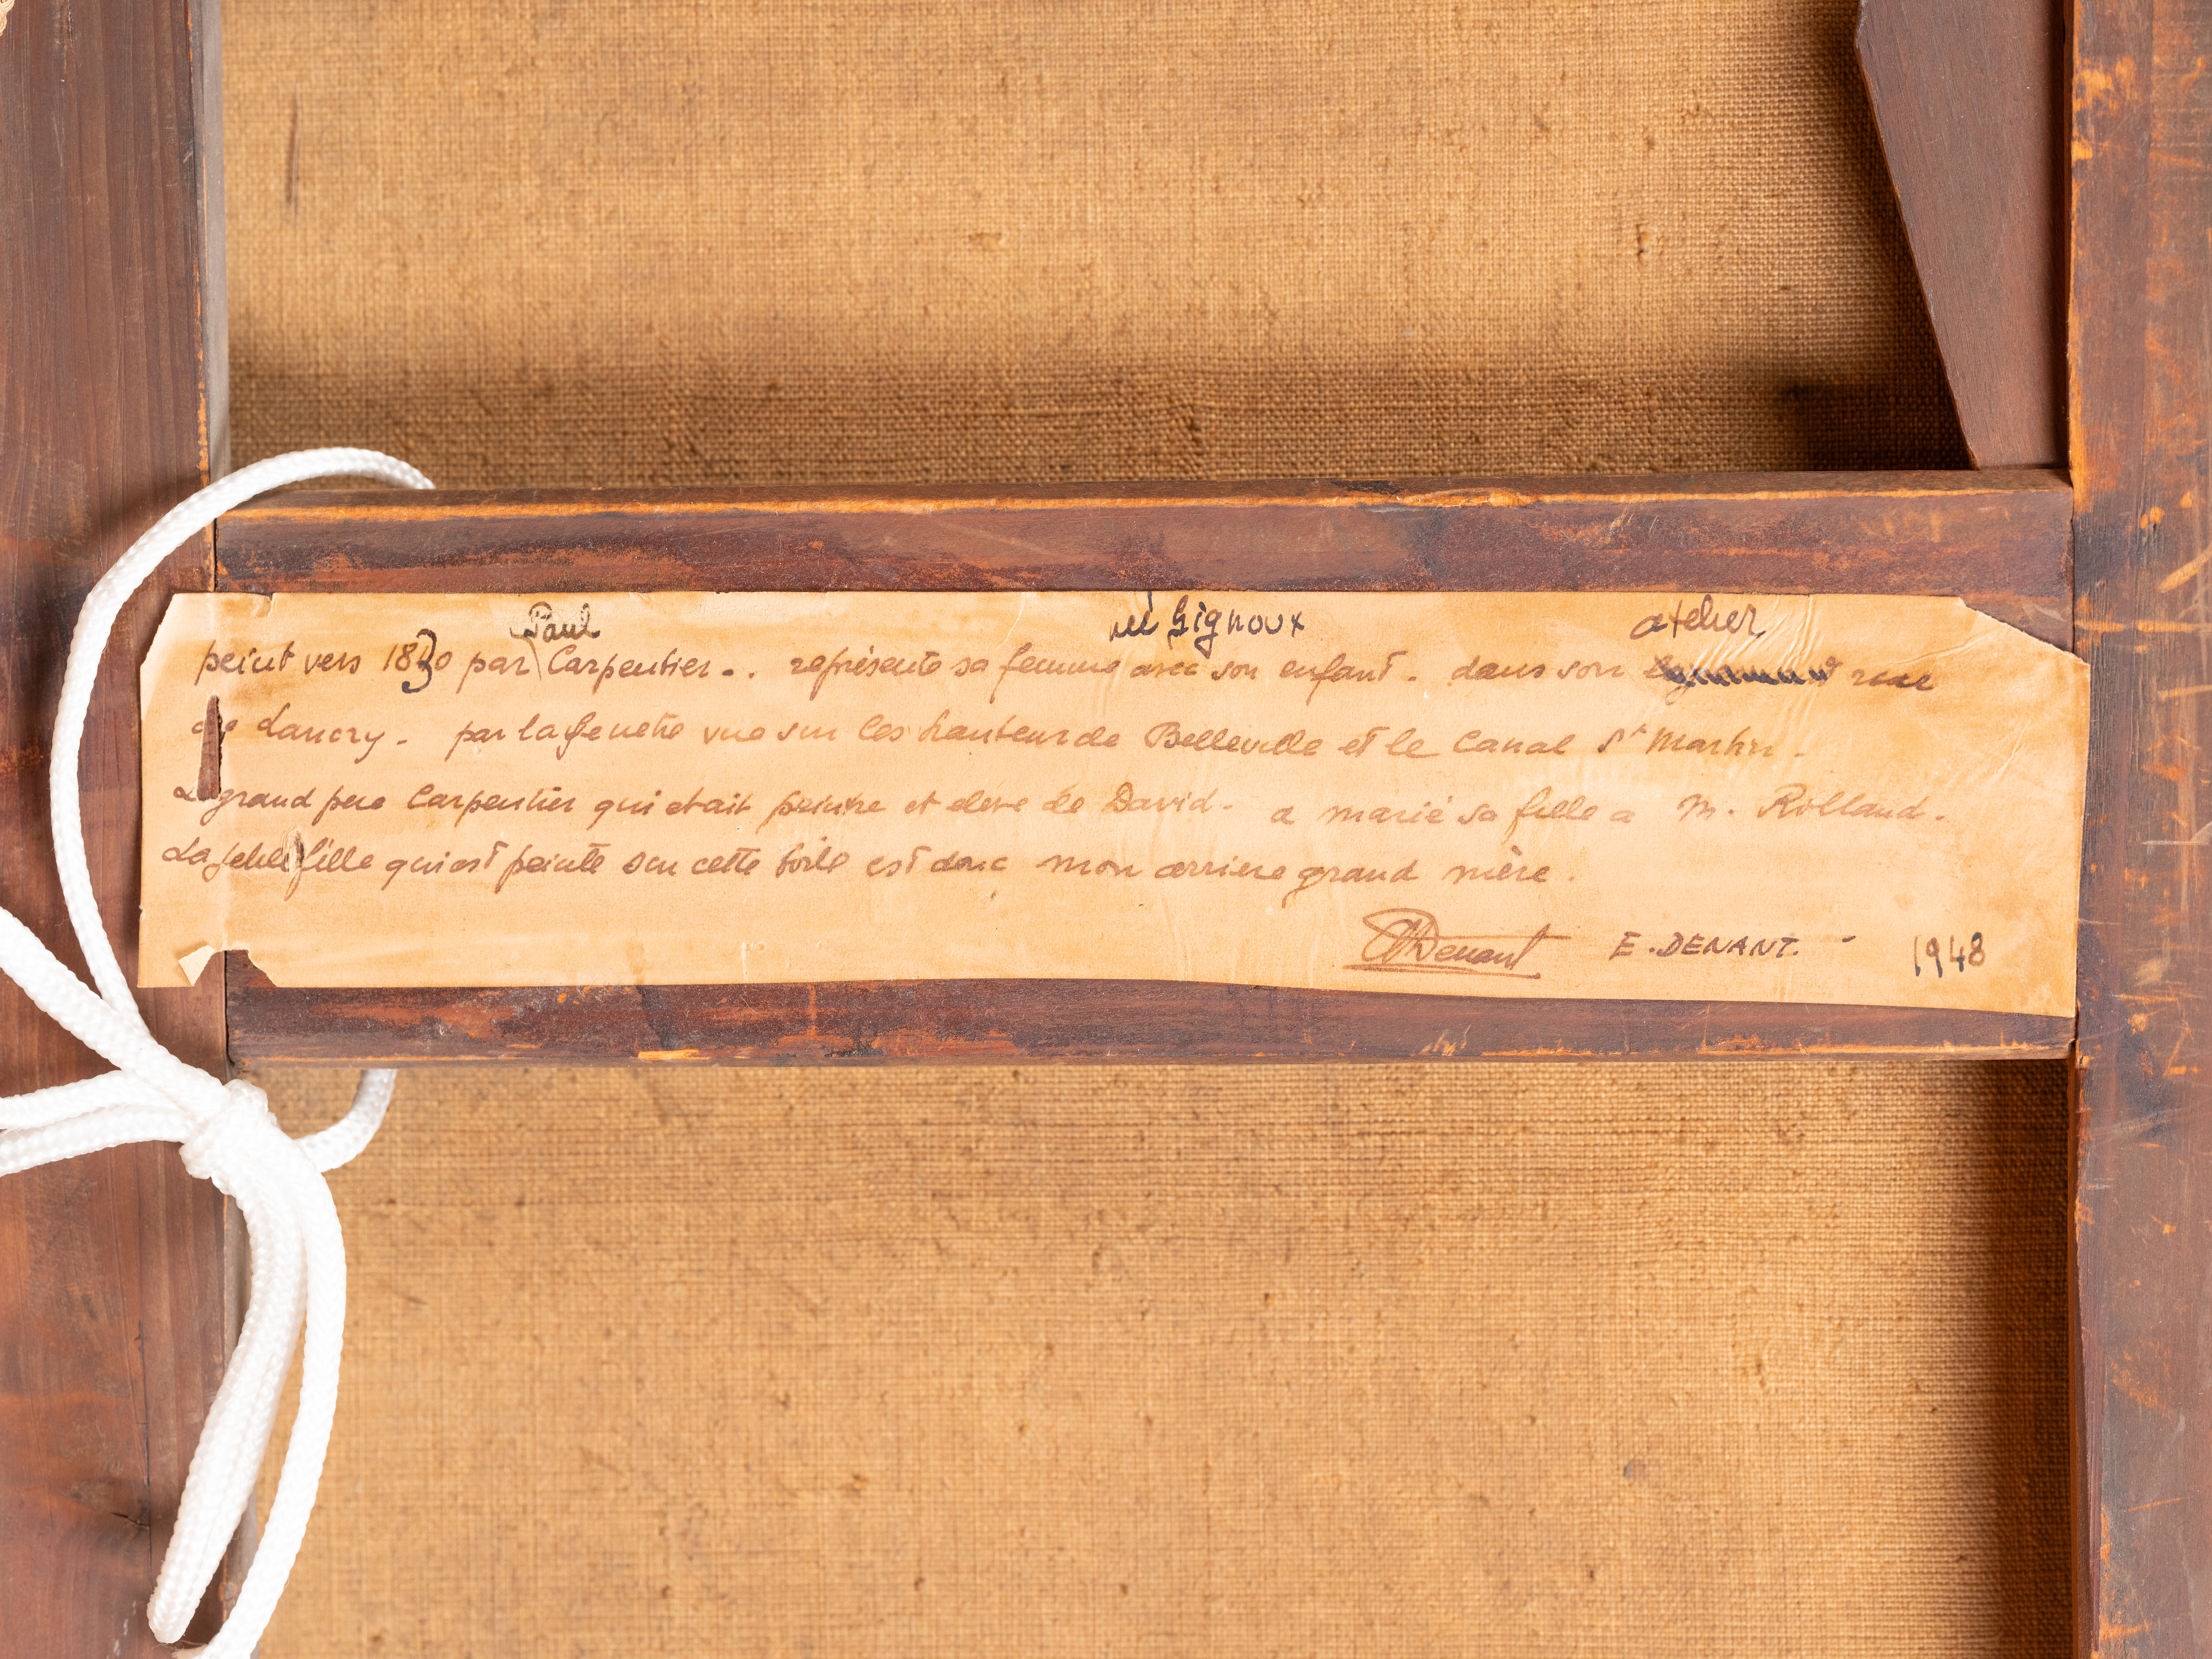 Paul née Gignoux atelier
peint vers 1830 par Carpentier.. représente sa femme avec son enfant. dans son rue
de Lancry. par la fenetre vue sur les hauteurs de Belleville et le Canal St Martin.
Le grand pere Carpentier qui etait peintre et eleve de David. a marié sa fille a M. Rolland.
La petite fille qui est peinte sur cette toile est donc mon arriere grand mère.
EDenant E. DENANT. - 1948